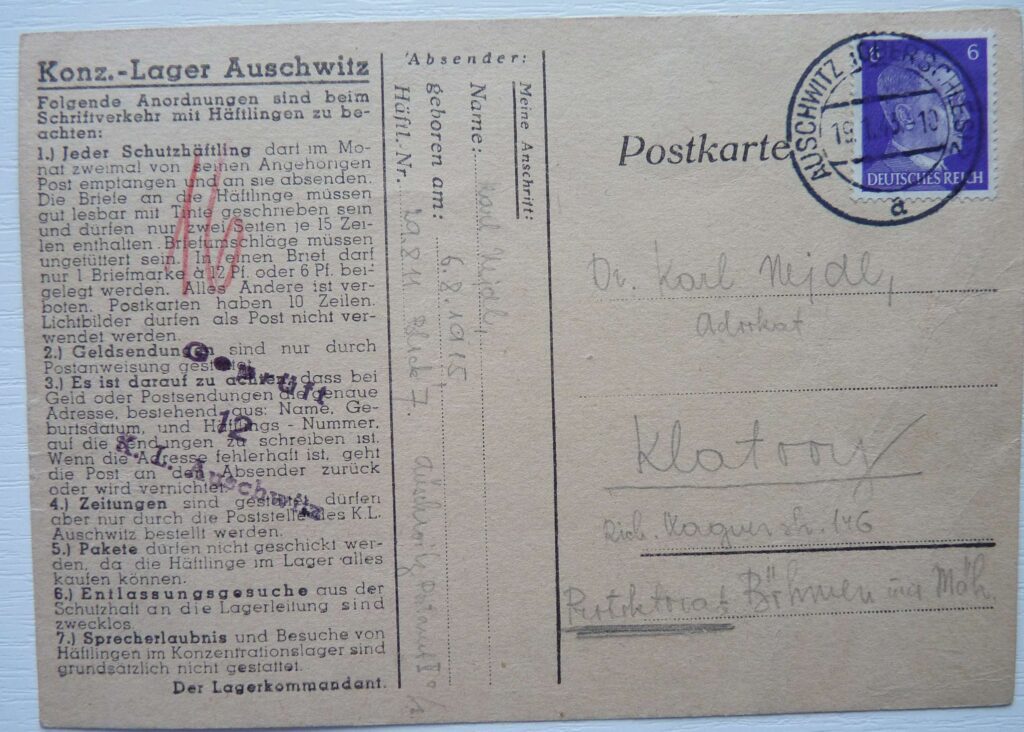 Konz.-Lager Auschwitz
Folgende Anordnungen sind beim
Schriftverkehr mit Häftlingen zu be-
achten:
1.) Jeder Schutzhäftling darf im Mo-
nat zweimal von seinen Angehörigen
Post empfangen und an sie absenden.
Die Briefe an die Häftlinge müssen
gut lesbar mit Tinte geschrieben sein
und dürfen nur zwei Seiten je 15 Zei-
len enthalten. Briefumschläge müssen
ungefüttert sein. In einen Brief darf
nur 1 Briefmarke à 12 Pf. oder 6 Pf. bei-
gelegt werden. Alles Andere ist ver-
boten. Postkarten haben 10 Zeilen.
Lichtbilder dürfen als Post nicht ver-
wendet werden.
2.) Geldsendungen sind nur durch
Postanweisung gestattet.
3.) Es ist darauf zu achten, dass bei
Geld oder Postsendungen die genaue
Adresse, bestehend aus: Name, Ge-
burtsdatum, und Häftlings - Nummer,
auf die Sendungen zu schreiben ist.
Wenn die Adresse fehlerhaft ist, geht
die Post an den Absender zurück
oder wird vernichtet.
4.) Zeitungen sind gestattet, dürfen
aber nur durch die Poststelle des K.L.
Auschwitz bestellt werden.
5.) Pakete dürfen nicht geschickt wer-
den, da die Häftlinge im Lager alles
kaufen können.
6.) Entlassungsgesuche aus der
Schutzhaft an die Lagerleitung sind
zwecklos.
7.) Sprecherlaubnis und Besuche von
Häftlingen im Konzentrationslager sind
grundsätzlich nicht gestattet.
Der Lagerkommandant.
16
Geprüft
12
K. L. Auschwitz
Meine Anschrift:
Absender:
Name: Karl Nejdl,
geboren am: 6. 8. 1915
Häftl.-Nr. 29.811 Block 7.
Postkarte
AUSCHWITZ OBERSCHLES.
a
6
DEUTSCHES REICH
Dr. Karl Nejdl,
Advokat
Klatovy
Rich. Wagner str. 146
Protektorat Böhmen und Mäh.